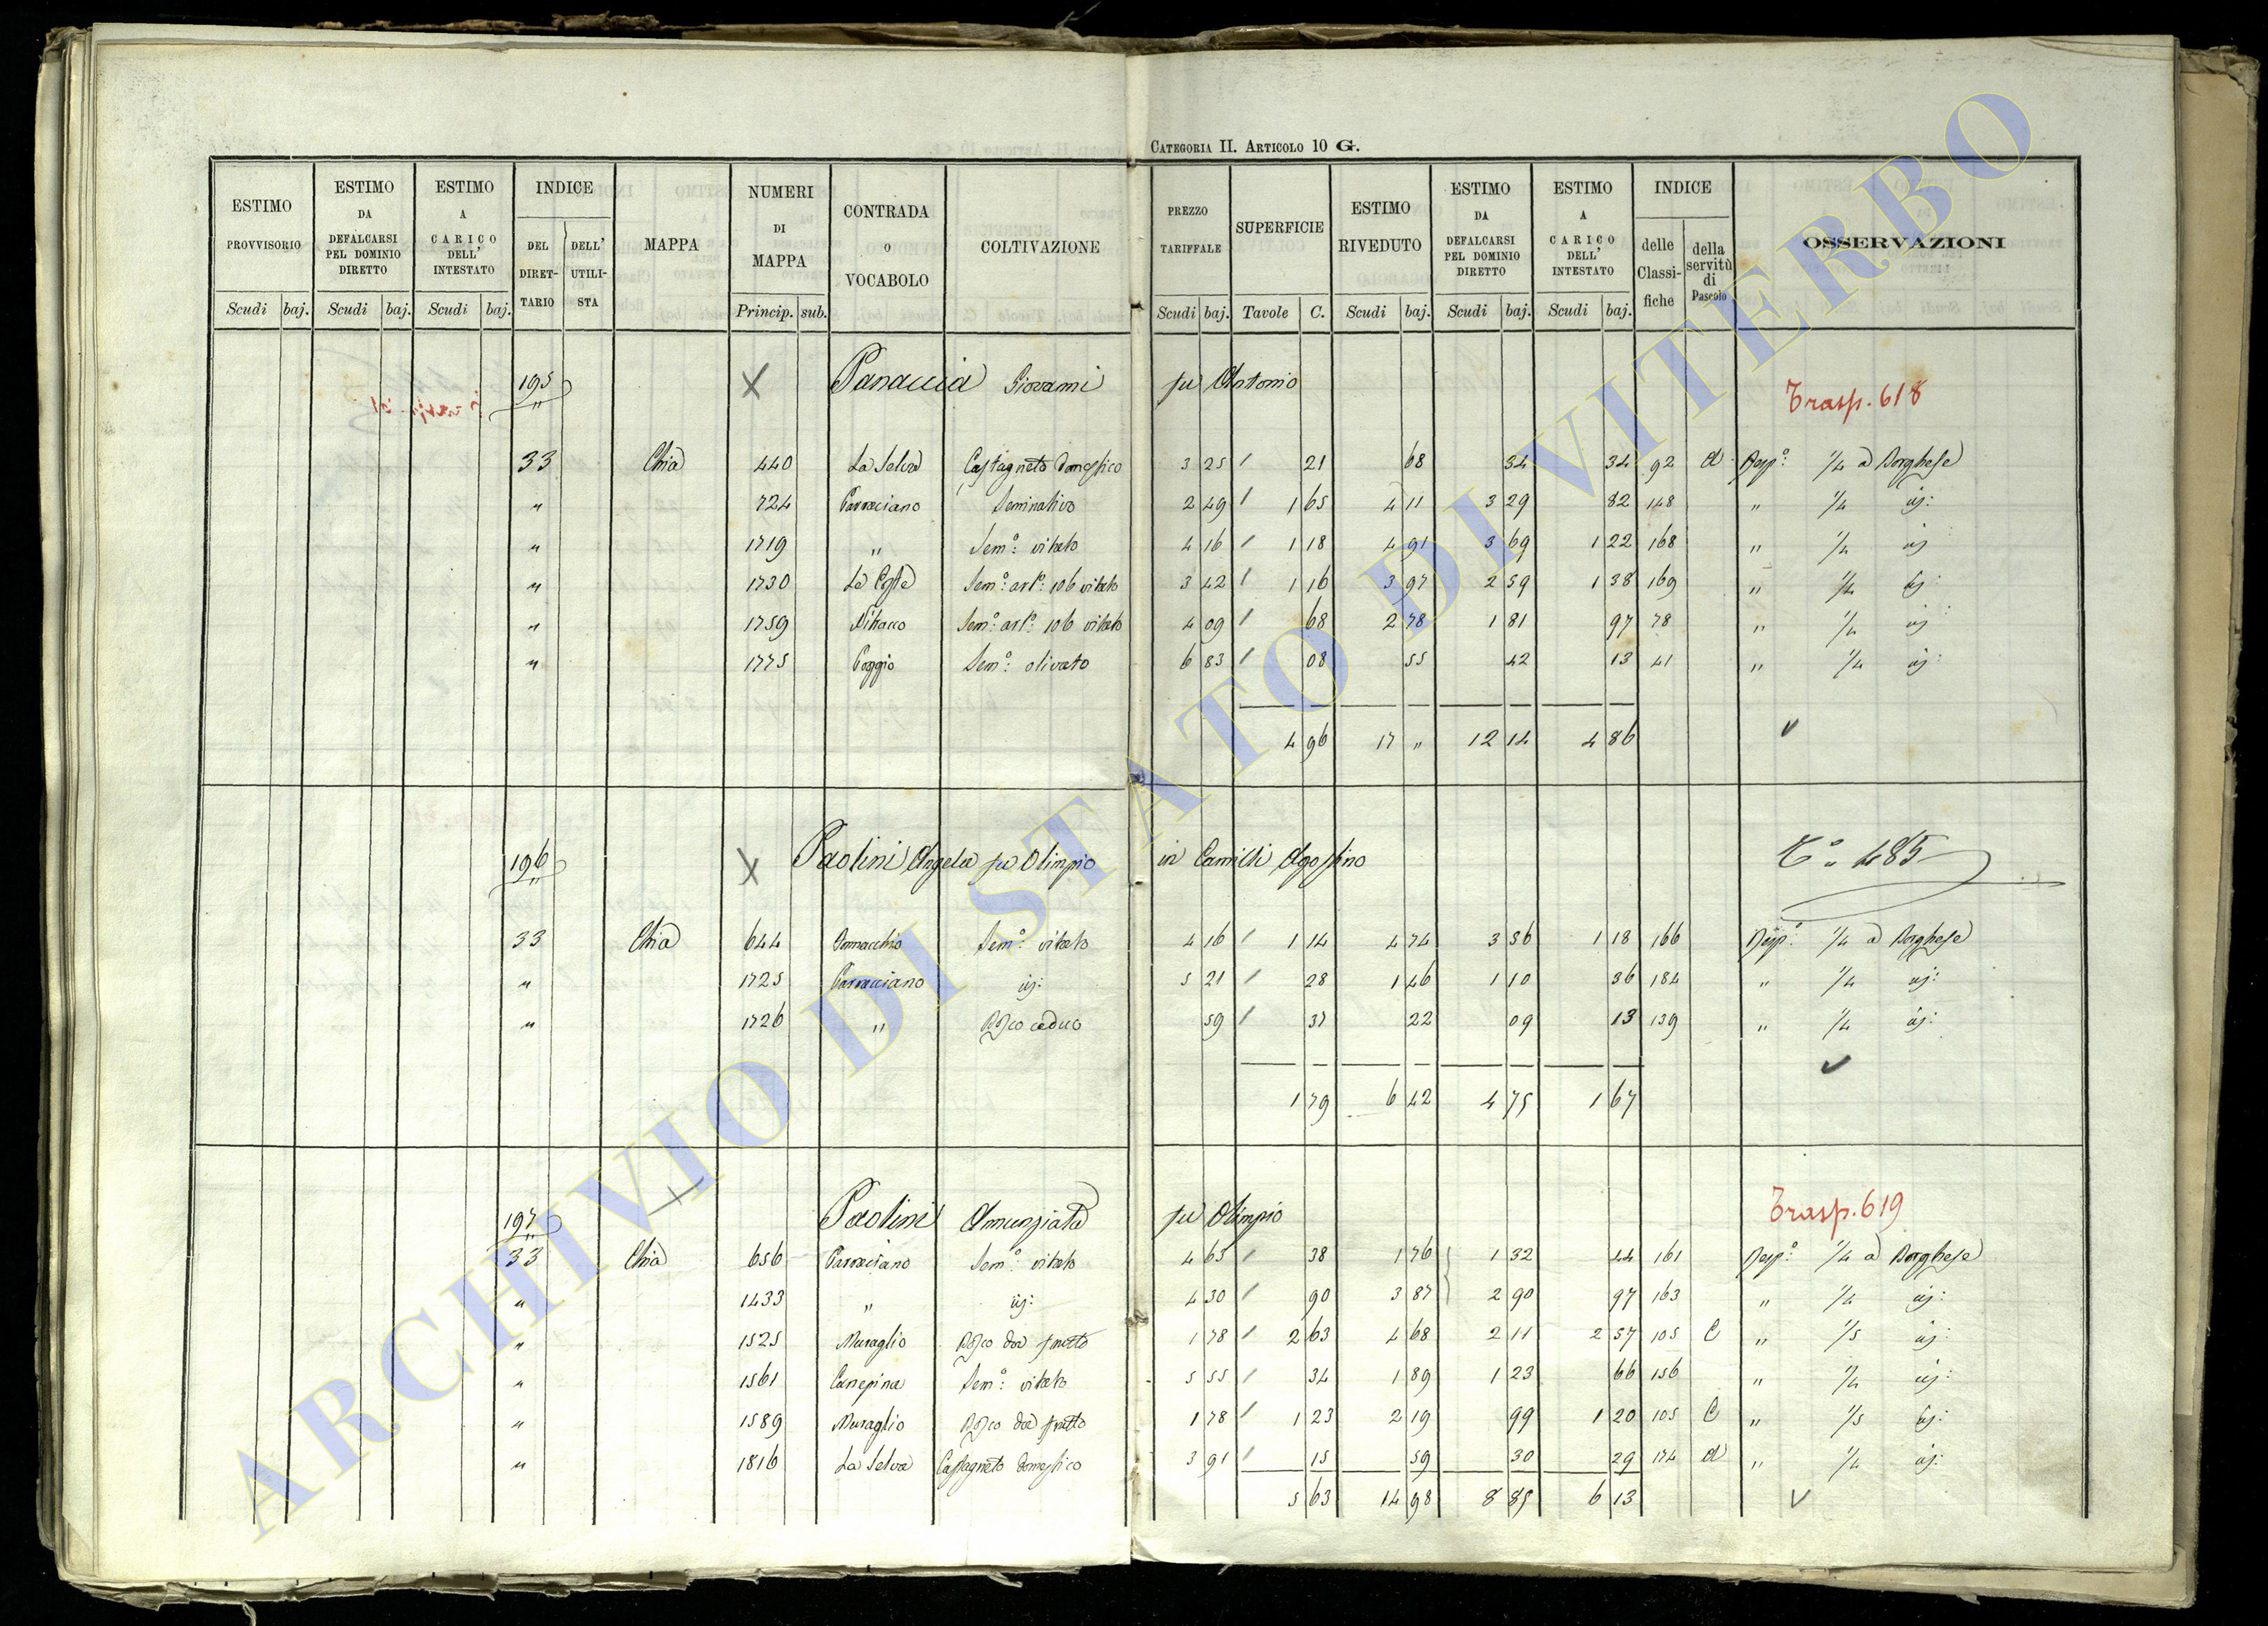 CATEGORIA II. ARTICOLO 10 G.
ESTIMO PROVVISORIO Scudi baj. ESTIMO DA DEFALCARSI PEL DOMINIO DIRETTO Scudi baj. ESTIMO A CARICO DELL' INTESTATO Scudi baj. INDICE DEL DIRETTARIO DELL' UTILISTA MAPPA NUMERI DI MAPPA Princip. sub. CONTRADA O VOCABOLO COLTIVAZIONE PREZZO TARIFFALE Scudi baj. SUPERFICIE Tavole C. ESTIMO RIVEDUTO Scudi baj. ESTIMO DA DEFALCARSI PEL DOMINIO DIRETTO Scudi baj. ESTIMO A CARICO DELL' INTESTATO Scudi baj. INDICE delle Classifiche della servitù di Pascolo OSSERVAZIONI
195 Panaccia Giovanni fu Antonio Trasp. 618
33 Chia 440 La Selva Castagneto domestico 3 25 / 21 68 34 34 92 d Risp.o 1/4 a Borghese
" 724 Parraciano Seminativo 2 49 / 1 65 4 11 3 29 82 148 " 1/4 id:
" 1719 " Sem.o: vitato 4 16 / 1 18 4 91 3 69 1 22 168 " 1/4 id
" 1730 Le Coste Sem.o: art.o: 106 vitato 3 42 / 1 16 3 97 2 59 1 38 169 " 1/4 id:
" 1759 Sem.o: art.o: 106 vitato 4 09 / 68 2 78 1 81 97 78 " 1/4 id
" 1775 Poggio Sem.o: olivato 6 83 / 08 55 42 13 41 " 1/4 id:
4 96 17 " 12 14 4 86
196 Paolini Angela fu Olimpio in Camilli Agostino T.o 485
33 Chia 644 Sem.o: vitato 4 16 / 1 14 4 74 3 56 1 18 166 Risp.o: 1/4 a Borghese
" 1725 Parracciano id: 5 21 / 28 1 46 1 10 36 184 " 1/4 id:
" 1726 " Bosco ceduo 59 / 37 22 09 13 139 " 1/4 id:
1 79 6 42 4 75 1 67
197 Paolini Annunziata fu Olimpio Trasp. 619
33 Chia 656 Parraciano Sem.o: vitato 4 63 / 38 1 76 1 32 44 161 Risp.o: 1/4 a Borghese
" 1433 " id: 4 30 / 90 3 87 2 90 97 163 " 1/4 id:
" 1525 Muraglio Bosco da frutto 1 78 / 2 63 4 68 2 11 2 57 105 C " 1/5 id:
" 1561 Canepina Sem.o: vitato 5 55 / 34 1 89 1 23 66 156 " 1/4 id:
" 1589 Muraglio Bosco da frutto 1 78 / 1 23 2 19 99 1 20 105 C " 1/5 id:
" 1816 La Selva Castagneto domestico 3 91 / 15 59 30 29 174 d " 1/4 id:
5 63 14 98 8 85 6 13
ARCHIVIO DI STATO DI VITERBO